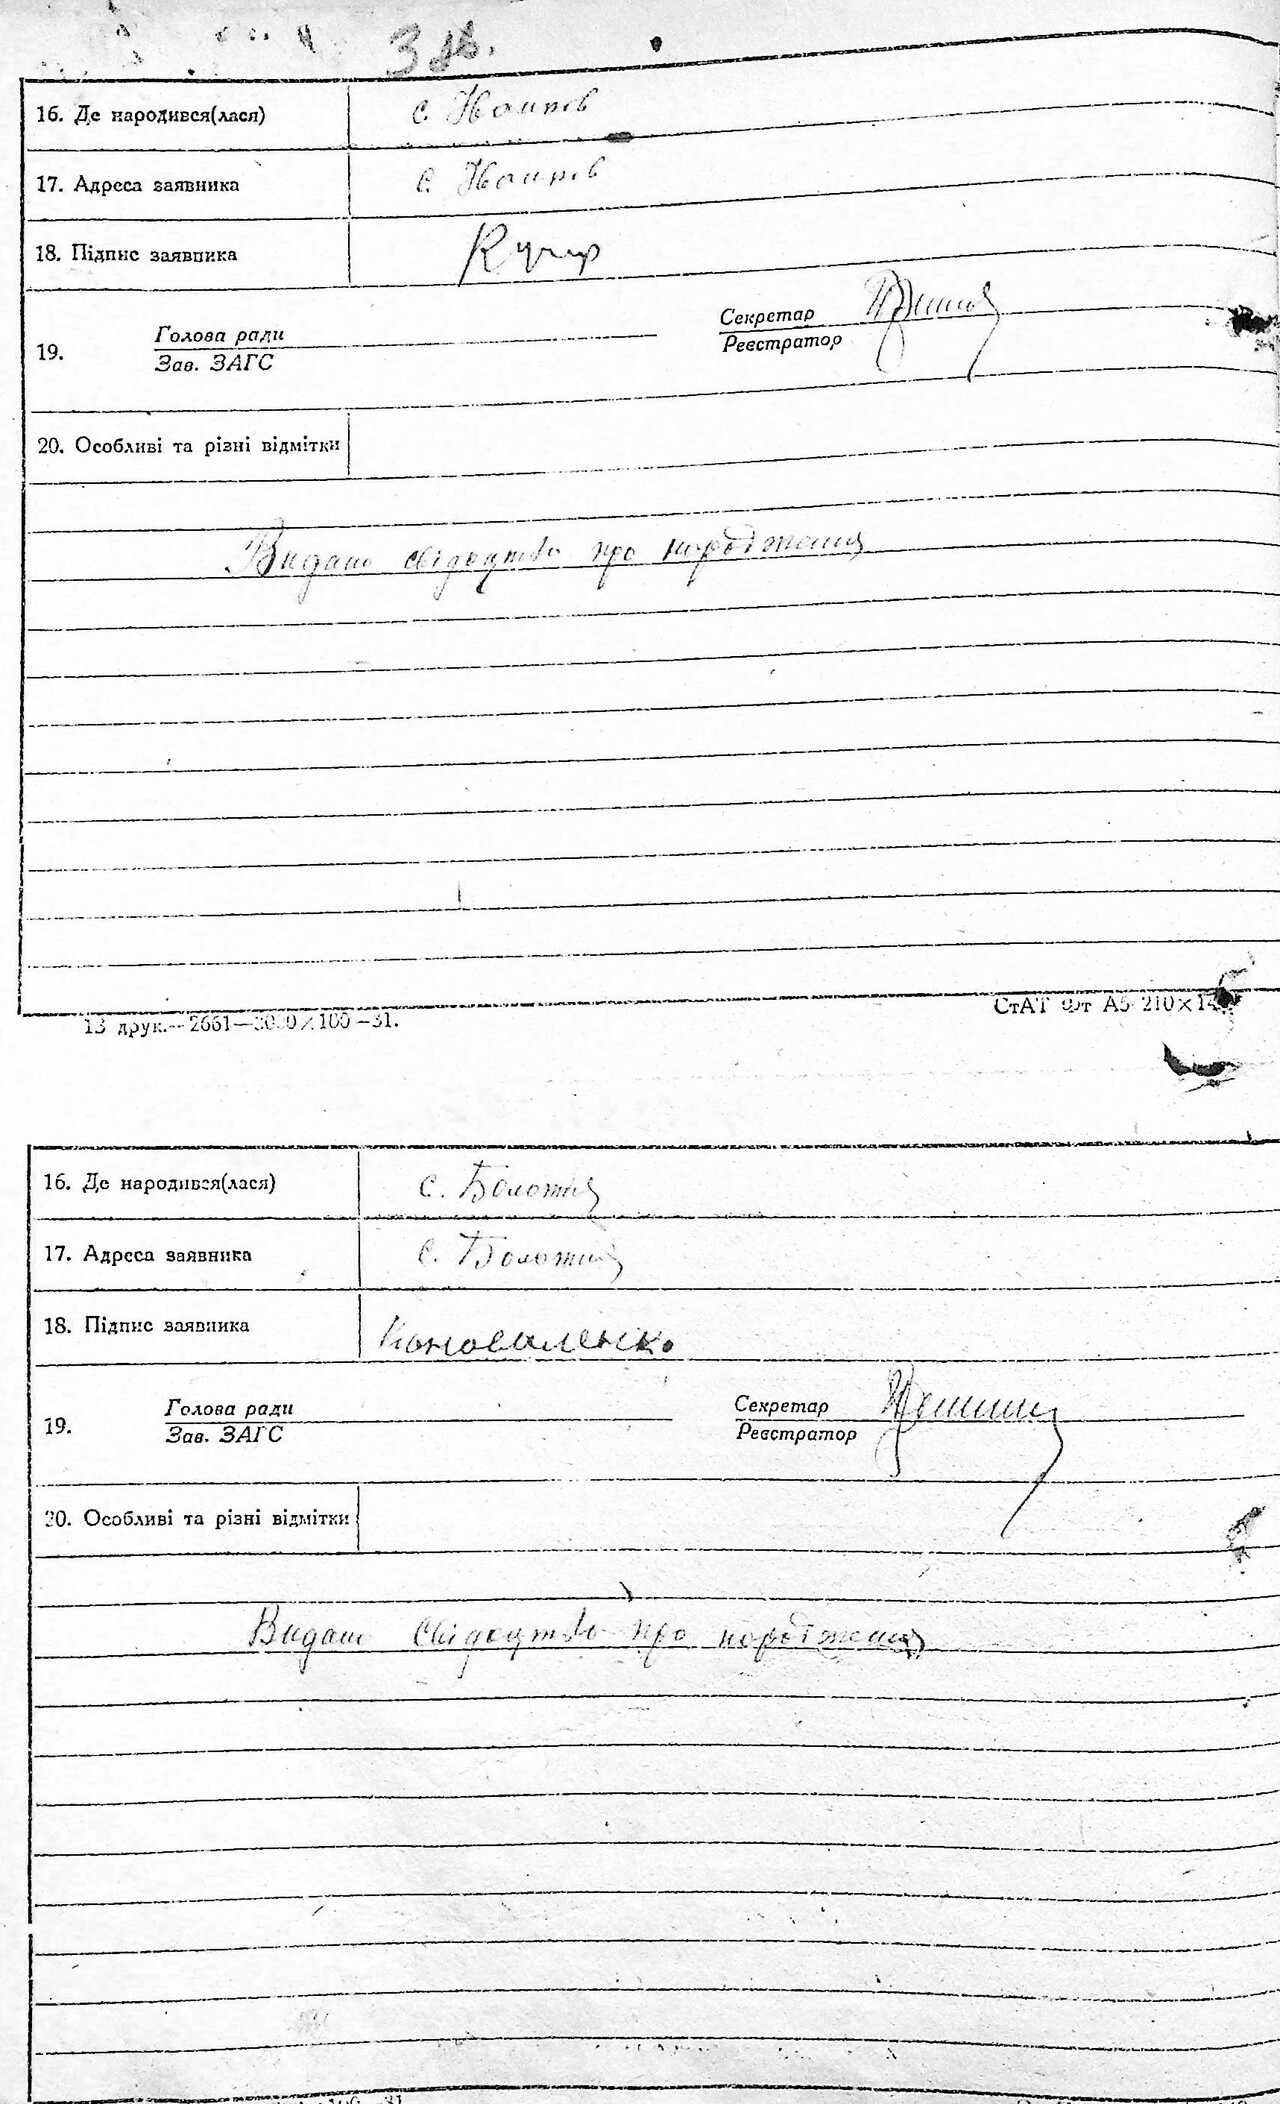 3 зв.
16. Де народився(лася) с.
17. Адреса заявника с.
18. Підпис заявника
19. Голова ради Секретар
Зав. ЗАГС Реєстратор
20. Особливі та різні відмітки
Видано свідоцтво про народження
13 друк.—2661—3000×100—31. СтАТ Фт А5 210×14
16. Де народився(лася) с. Болотня
17. Адреса заявника с. Болотня
18. Підпис заявника Коноваленко
19. Голова ради Секретар
Зав. ЗАГС Реєстратор
20. Особливі та різні відмітки
Видано свідоцтво про народження